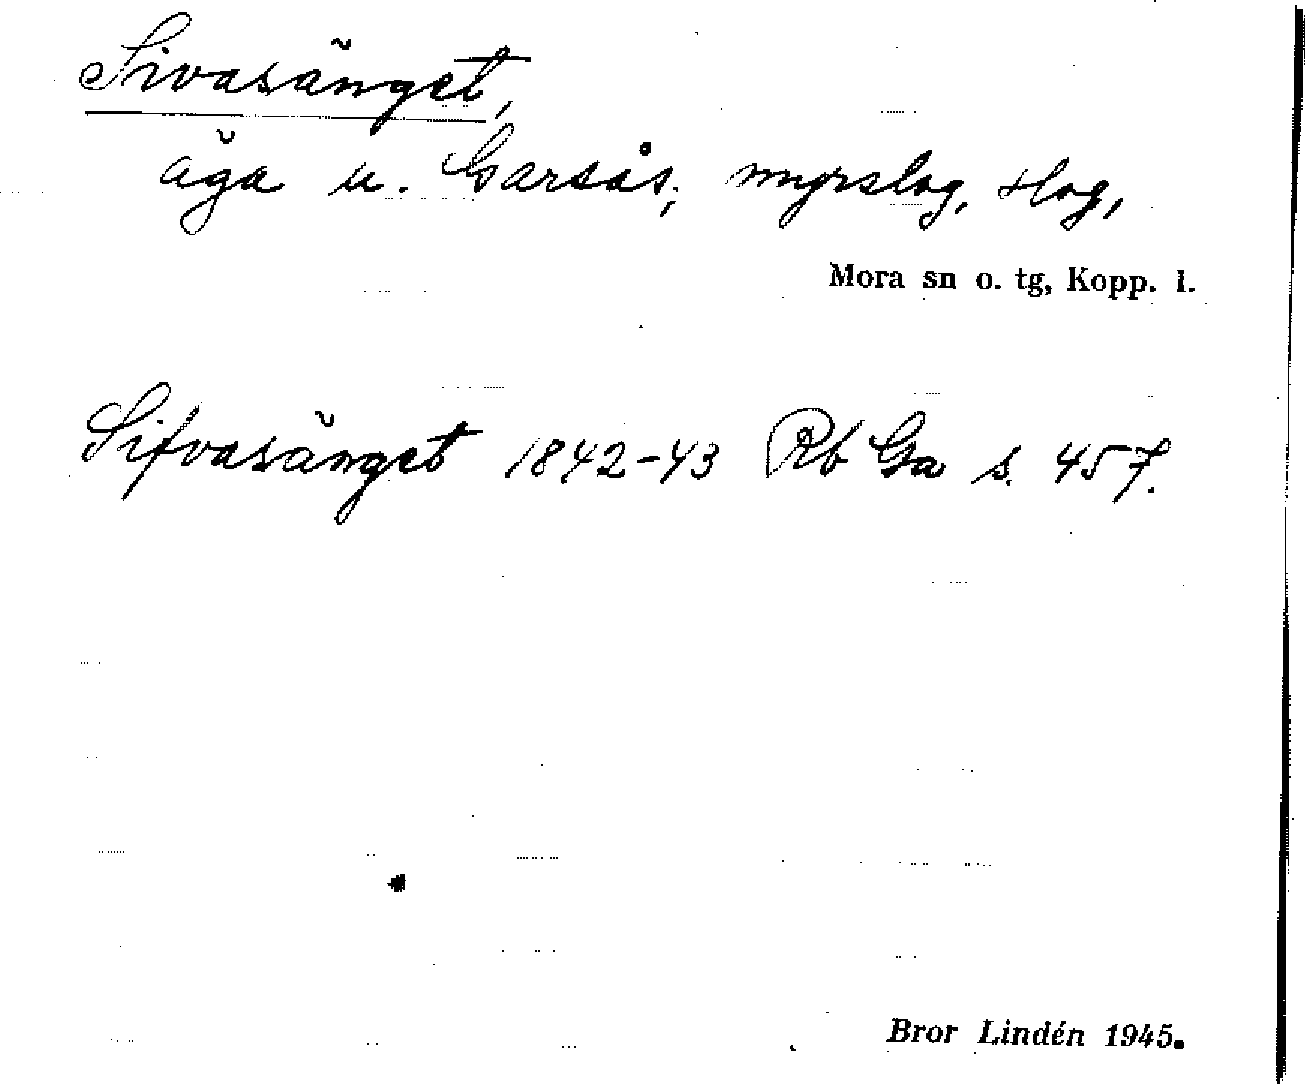 Sivasänget,
äga u. Garsås; myrslog, slog,
Mora sn o. tg, Kopp. l.
Sifvasänget 1842-43 Rb Ga s. 457.
Bror Lindén 1945.